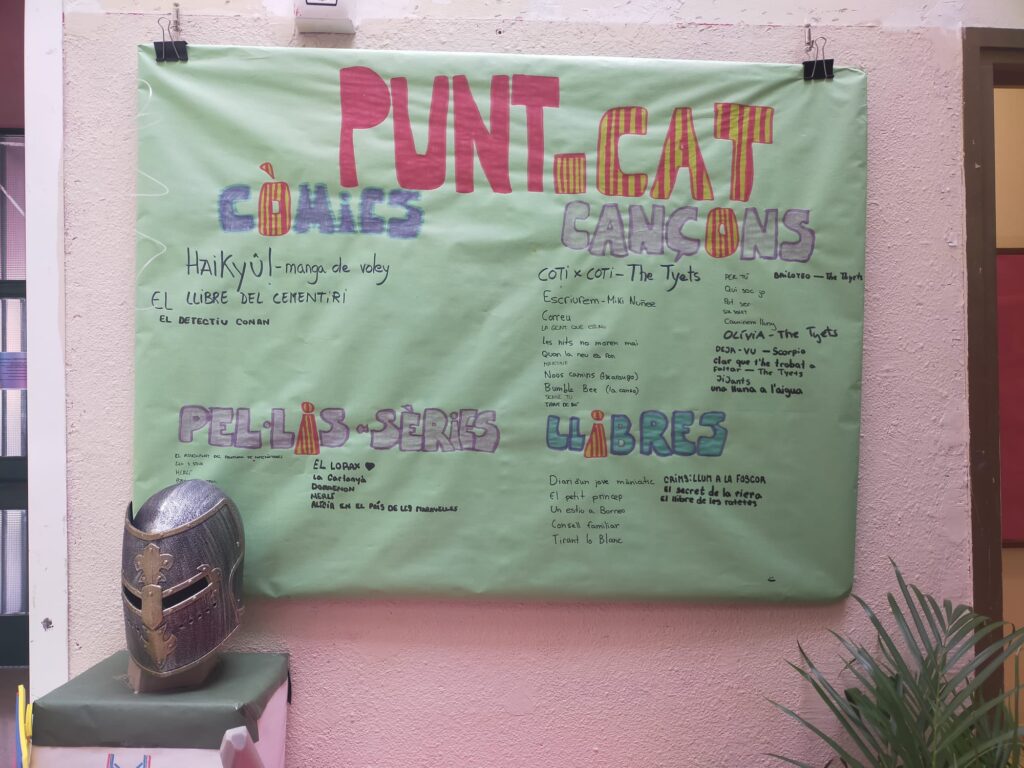 PUNT.CAT
CÒMICS
HAIKYÛ! - manga de voley
EL LLIBRE DEL CEMENTIRI
EL DETECTIU CONAN
CANÇONS
COTI x COTI - The Tyets
Escriurem - Miki Nuñez
Correu
LA GENT QUE ESTIMO
les nits no moren mai
Quan la neu es fon
Nous camins (Axarango)
Bumble Bee (la canso)
SENSE TU
PER TÚ
Qui soc jo
Pot ser
Caminem lluny
BAILOTEO - The Tyets
OLÍVIA - The Tyets
DEJA-VU - Scorpio
clar que t'he trobat a
faltar - The Tyets
JiJants
una lluna a l'aigua
PEL·LIS o SÈRIES
MERLÍ
EL LORAX ♥
La Cartanyà
DORAEMON
MERLÍ
ALÍCIA EN EL PAÍS DE LES MARAVELLES
LLIBRES
Diari d'un jove maniàtic
El petit princep
Un estio a Borneo
Consell familiar
Tirant lo Blanc
CRIMS: LLUM A LA FOSCOR
El secret de la riera
El llibre de les ratetes